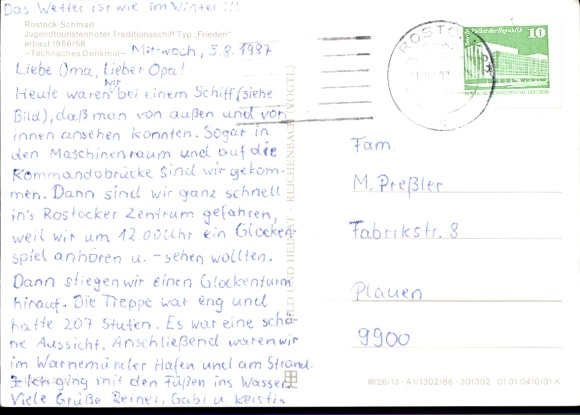 Das Wetter ist wie im Winter!!!
Rostock-Schmarl
Jugendtouristenhotel Traditionsschiff Typ „Frieden"
erbaut 1956/58
– Technisches Denkmal –
Mittwoch, 5.8.1987
Liebe Oma, lieber Opa!
Heute waren wir bei einem Schiff (siehe
Bild), daß man von außen und von
innen ansehen konnten. Sogar in
den Maschinenraum und auf die
Kommandobrücke sind wir gekom-
men. Dann sind wir ganz schnell
in's Rostocker Zentrum gefahren,
weil wir um 12.00 Uhr ein Glocken-
spiel anhören u. -sehen wollten.
Dann stiegen wir einen Glockenturm
hinauf. Die Treppe war eng und
hatte 207 Stufen. Es war eine schö-
ne Aussicht. Anschließend waren wir
im Warnemünder Hafen und am Strand.
Ich ging mit den Füßen ins Wasser.
Viele Grüße Reiner, Gabi u. Kerstin
BILD UND HEIMAT REICHENBACH (VOGTL)
ROSTOCK
Palast der Republik
10
DDR
Fam.
M. Preßler
Fabrikstr. 8
Plauen
9900
III/26/13 · A1/1302/86 · 301302 01 01 0410/31 K